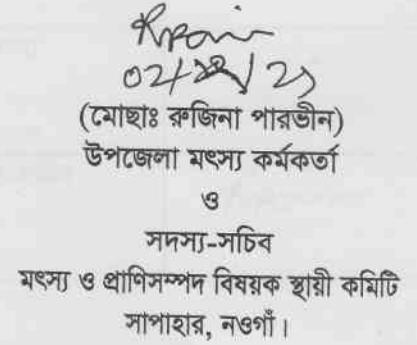 (মোছাঃ রুজিনা পারভীন)
উপজেলা মৎস্য কর্মকর্তা
ও
সদস্য-সচিব
মৎস্য ও প্রাণিসম্পদ বিষয়ক স্থায়ী কমিটি
সাপাহার, নওগাঁ।